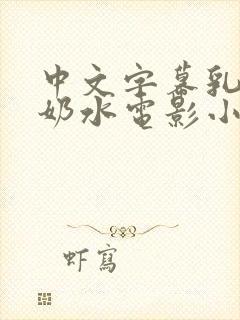 中文字幕乳
奶水电影小
虾写